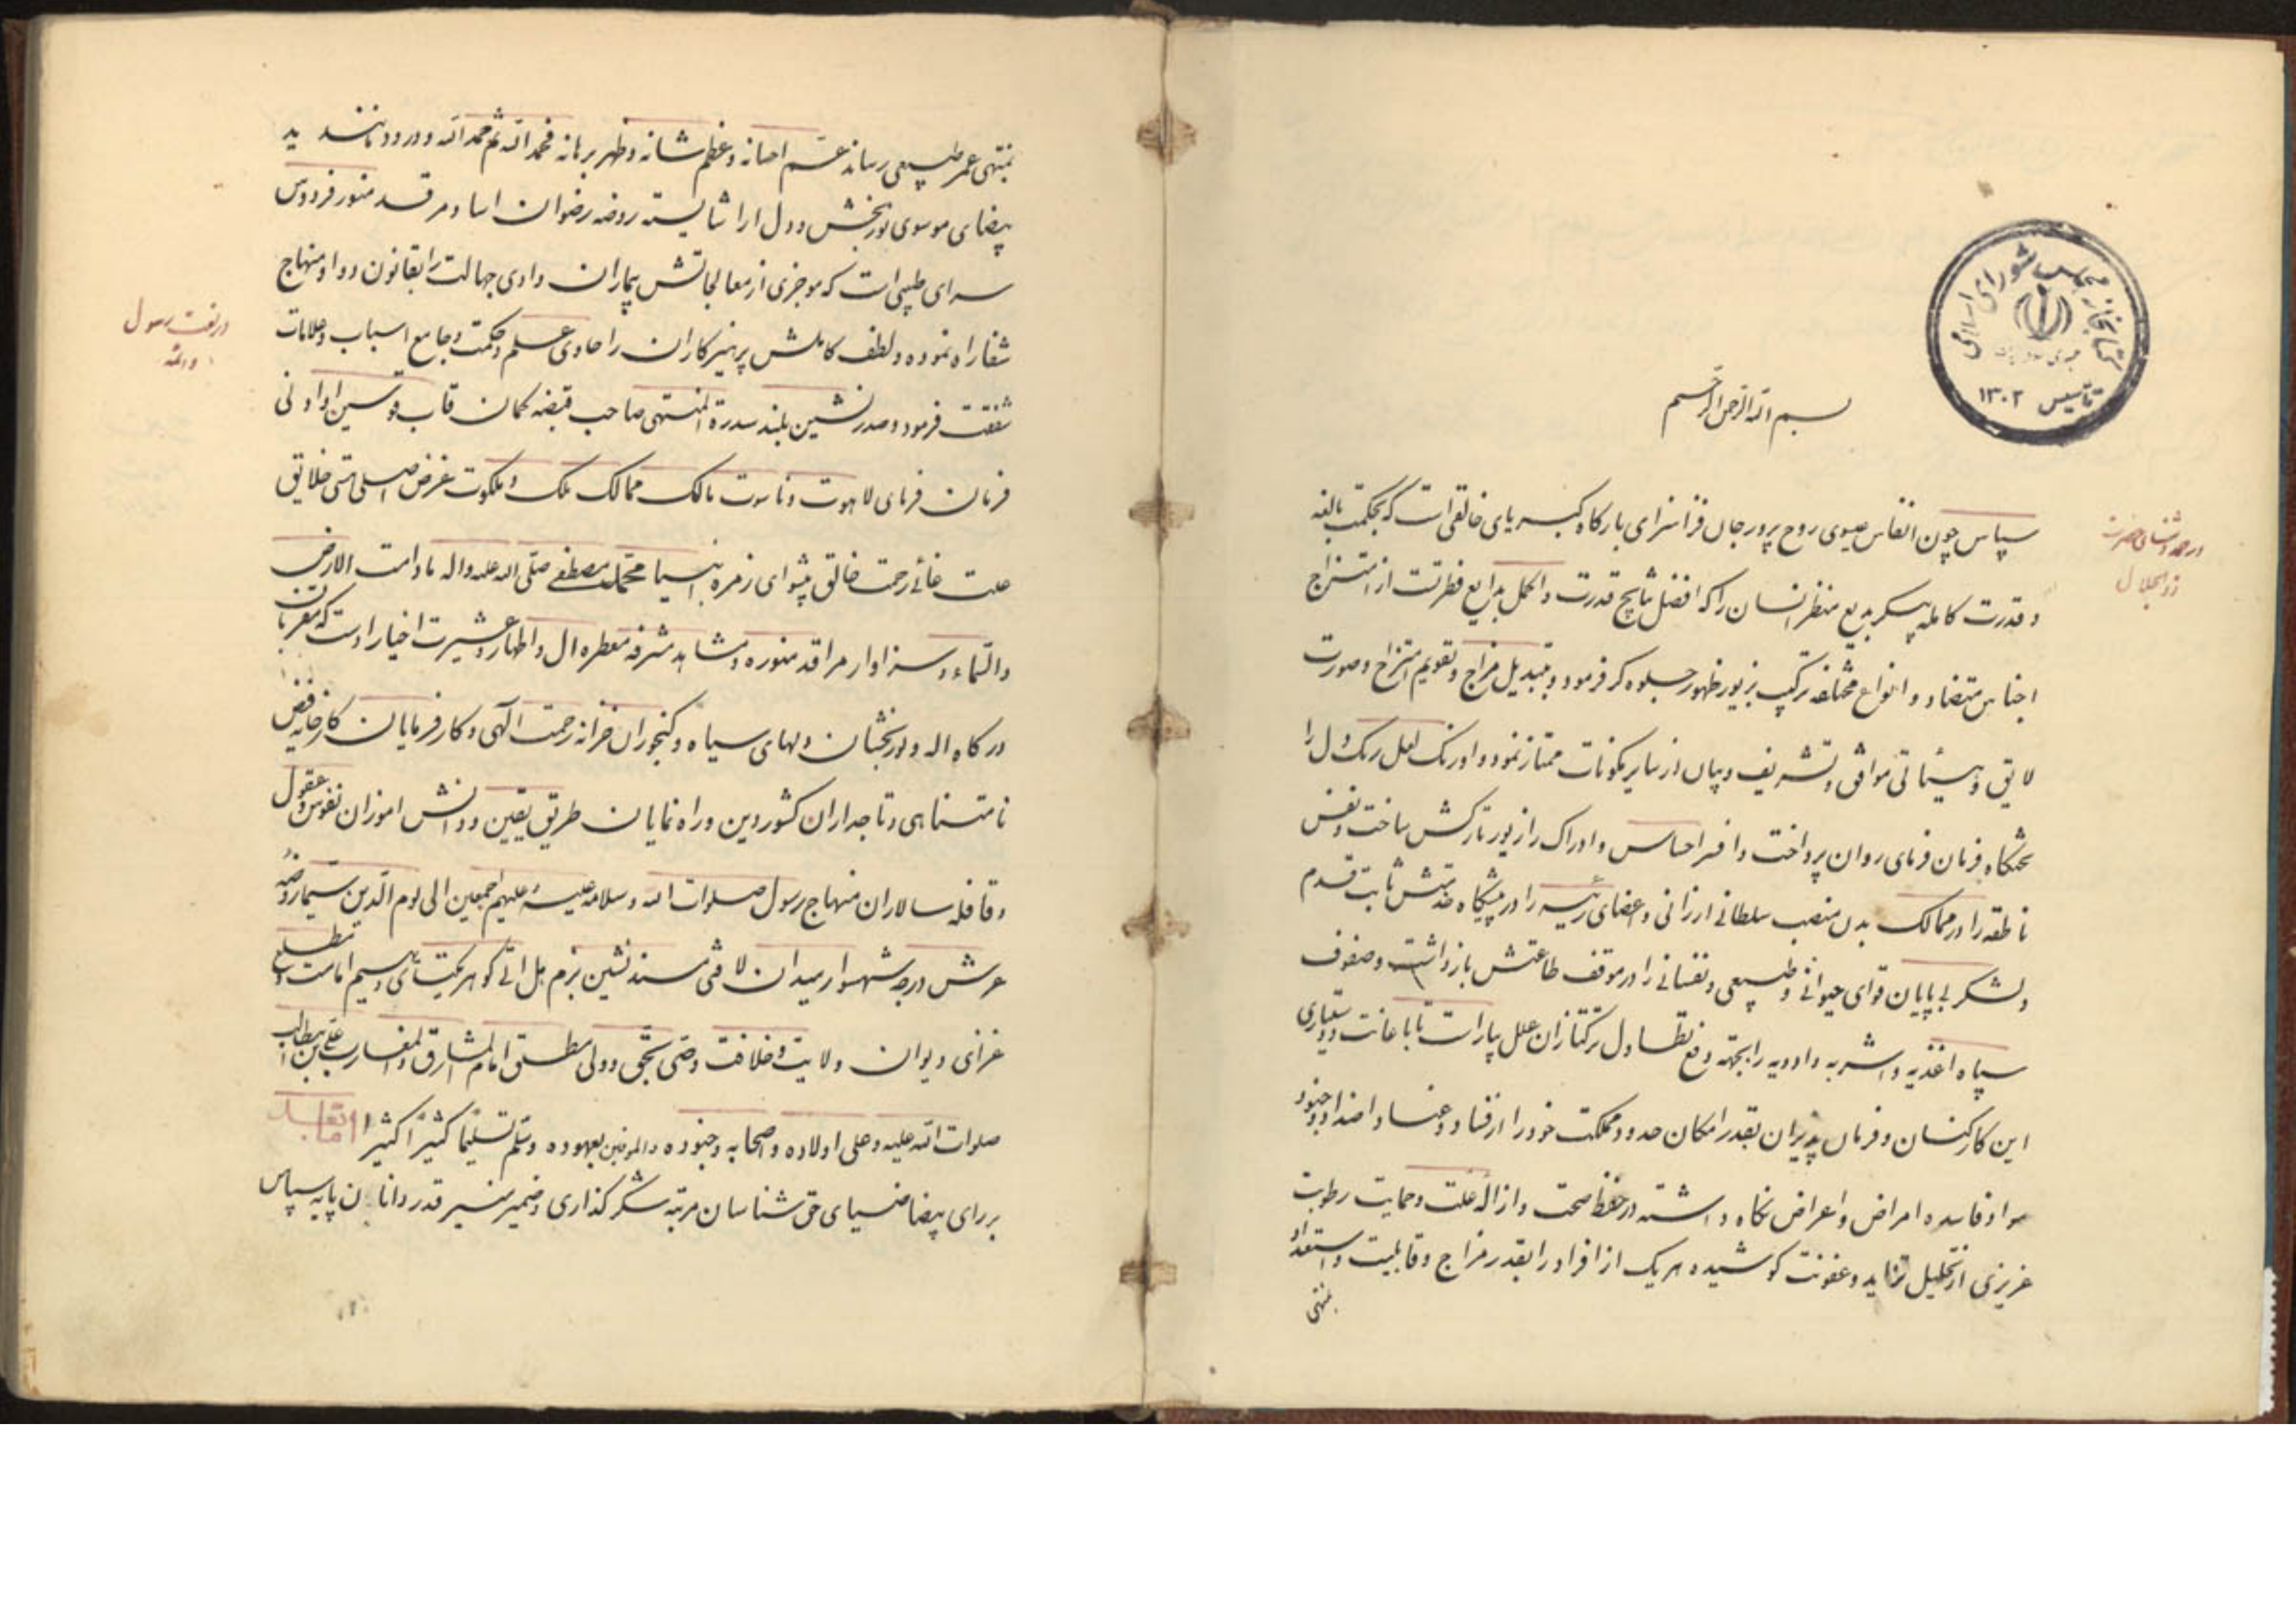 کتابخانه مجلس شورای اسلامی
تاسیس ۱۳۰۲
بسم الله الرحمن الرحیم
در حمد و ثنای حضرت
ذوالجلال
سپاس چون انفاس عیسوی روح پرور جان فزا سزای بارکاه کبریای خالقی است که بحکمت بالغه
و قدرت کامله پیکر بدیع منظر انسان را که افضل نتایج قدرت و اکمل بدایع فطرتست از امتزاج
اجناس متضاد و انواع مختلفه ترکیب بزیور ظهور جلوه کر فرمود و بتبدیل مزاج و تقویم امتزاج و صورت
لایق و هیئاتی موافق و تشریف و بیان از سایر مکونات ممتاز نمود و اورنک لعل رنک دل را
تختکاه فرمان فرمای روان پرداخت و افسر احساس و ادراک را زیور تارکش ساخت و نفس
ناطقه را در ممالک بدن منصب سلطانی ارزانی و اعضای رئیسه را در پیشگاه خدمتش ثابت قدم
و لشکر بی پایان قوای حیوانی و طبیعی و نفسانی را در موقف طاعتش بازداشت و صفوف
سپاه اغذیه و اشربه و ادویه را بجهته دفع تطاول ترکتازان علل بیاراست تا باعانت و دستیاری
این کارکنان و فرمان پذیران بقدر امکان حدود مملکت خود را از فساد و عناد اضداد و جنود
مواد فاسده امراض و اعراض نکاه داشته در حفظ صحت و ازاله علت و حمایت رطوبت
غریزی از تحلیل و عفونت کوشیده هر یک از افراد را بقدر مزاج و قابلیت و استعداد
بمنتهی
بمنتهی عمر طبیعی رساند عم احسانه و عظم شانه و ظهر برهانه فحمد الله ثم حمد الله و درود مانند ید
بیضای موسوی نوربخش و دل ارا شایسته روضه رضوان اسا و مرقد منور فردوس
سرای طبیبی است که موجزی از معالجاتش بیماران وادی جهالت را بقانون دوا و منهاج
در نعت رسول
و ائمه
شفا راه نموده و لطف کاملش پرهیزکاران را حاوی علم و حکمت و جامع اسباب و علامات
شفقت فرمود و صدرنشین بلند سدرة المنتهی صاحب قبضه کمان قاب قوسین او ادنی
فرمان فرمای لاهوت و ناسوت مالک ممالک ملک و ملکوت غرض اصلی هستی خلایق
علت غائی رحمت خالق پیشوای زمره انبیا محمد مصطفی صلی الله علیه و اله مادامت الارض
والسماء و سزاوار مراقد منوره و مشاهد مشرفه معطره ال و اطهار و عشیرت اخیار اوست که مقربان
درکاه اله و نوربخشان دلهای سیاه و کنجوران خزانه رحمت الهی و کارفرمایان کارخانه فیض
نامتناهی و تاجداران کشور دین و راه نمایان طریق یقین و دانش اموزان نفوس و عقول
و قافله سالاران منهاج رسول صلوات الله و سلامه علیه و علیهم اجمعین الی یوم الدین سیما روضه
عرش درجه شهسوار میدان لا فتی مسند نشین بزم هل اتی کوهر یکتای امامت
غرای دیوان ولایت و خلافت وصی بحق و ولی مطلق امام المشارق و المغارب علی بن ابیطالب
صلوات الله علیه و علی اولاده و اصحابه و جنوده والموفین بعهوده و سلم تسلیما کثیرا کثیرا اما بعد
بر رای بیضا ضیای حق شناسان مرتبه شکر کذاری و ضمیر منیر قدر دانان پایه سپاس